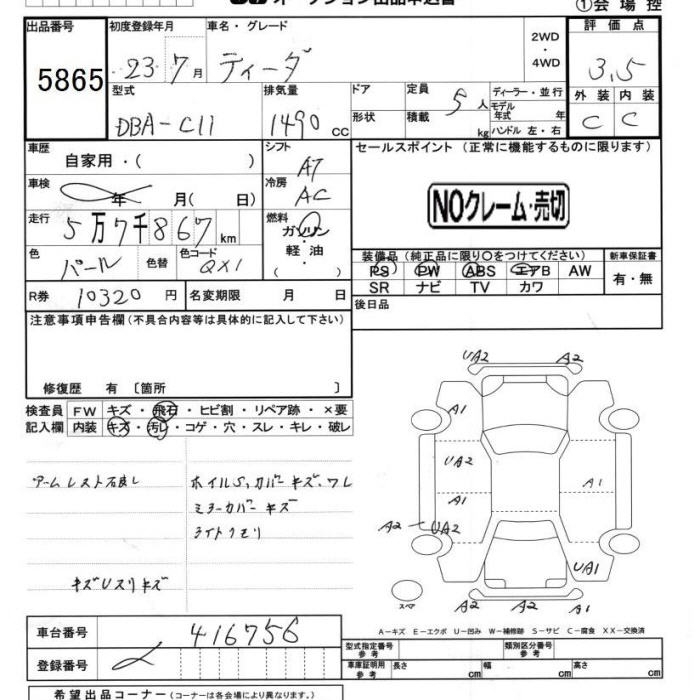 ①会場控
出品番号 初度登録年月 車名・グレード 2WD・4WD 評価点
5865 23 7月 ティーダ 3.5
型式 排気量 ドア 定員 5人 ディーラー・並行 外装 内装
DBA-C11 1490cc 形状 積載 kg モデル年式 年 ハンドル 左・右 C C
車歴 自家用・( ) シフト AT セールスポイント (正常に機能するものに限ります)
車検 年 月(日) 冷房 AC
NOクレーム・売切
走行 5万7千867km 燃料 ガソリン・軽油・( )
色 パール 色替 色コード QX1
装備品(純正品に限り○をつけてください) 新車保証書
PS PW ABS エアB AW 有・無
SR ナビ TV カワ
R券 10320円 名変期限 月 日 後日品
注意事項申告欄(不具合内容等は具体的に記入して下さい)
修復歴 有〔箇所 〕
検査員記入欄 FW キズ・飛石・ヒビ割・リペア跡・×要
内装 キズ・汚レ・コゲ・穴・スレ・キレ・破レ
UA2 A2
A1
UA2
A1 A1
A2 UA2
UA1
A2 A2
スペア
アームレスト不良し ホイルS,カバーキズ.ワレ
ミラーカバーキズ
ライトクモリ
キズUスリキズ
A-キズ E-エクボ U-凹み W-補修跡 S-サビ C-腐食 XX-交換済
車台番号 416756
登録番号
型式指定番号 参考 類別区分番号 参考
車庫証明用 参考 長さ cm 幅 cm 高さ cm
希望出品コーナー(コーナーは各会場により異なります。)